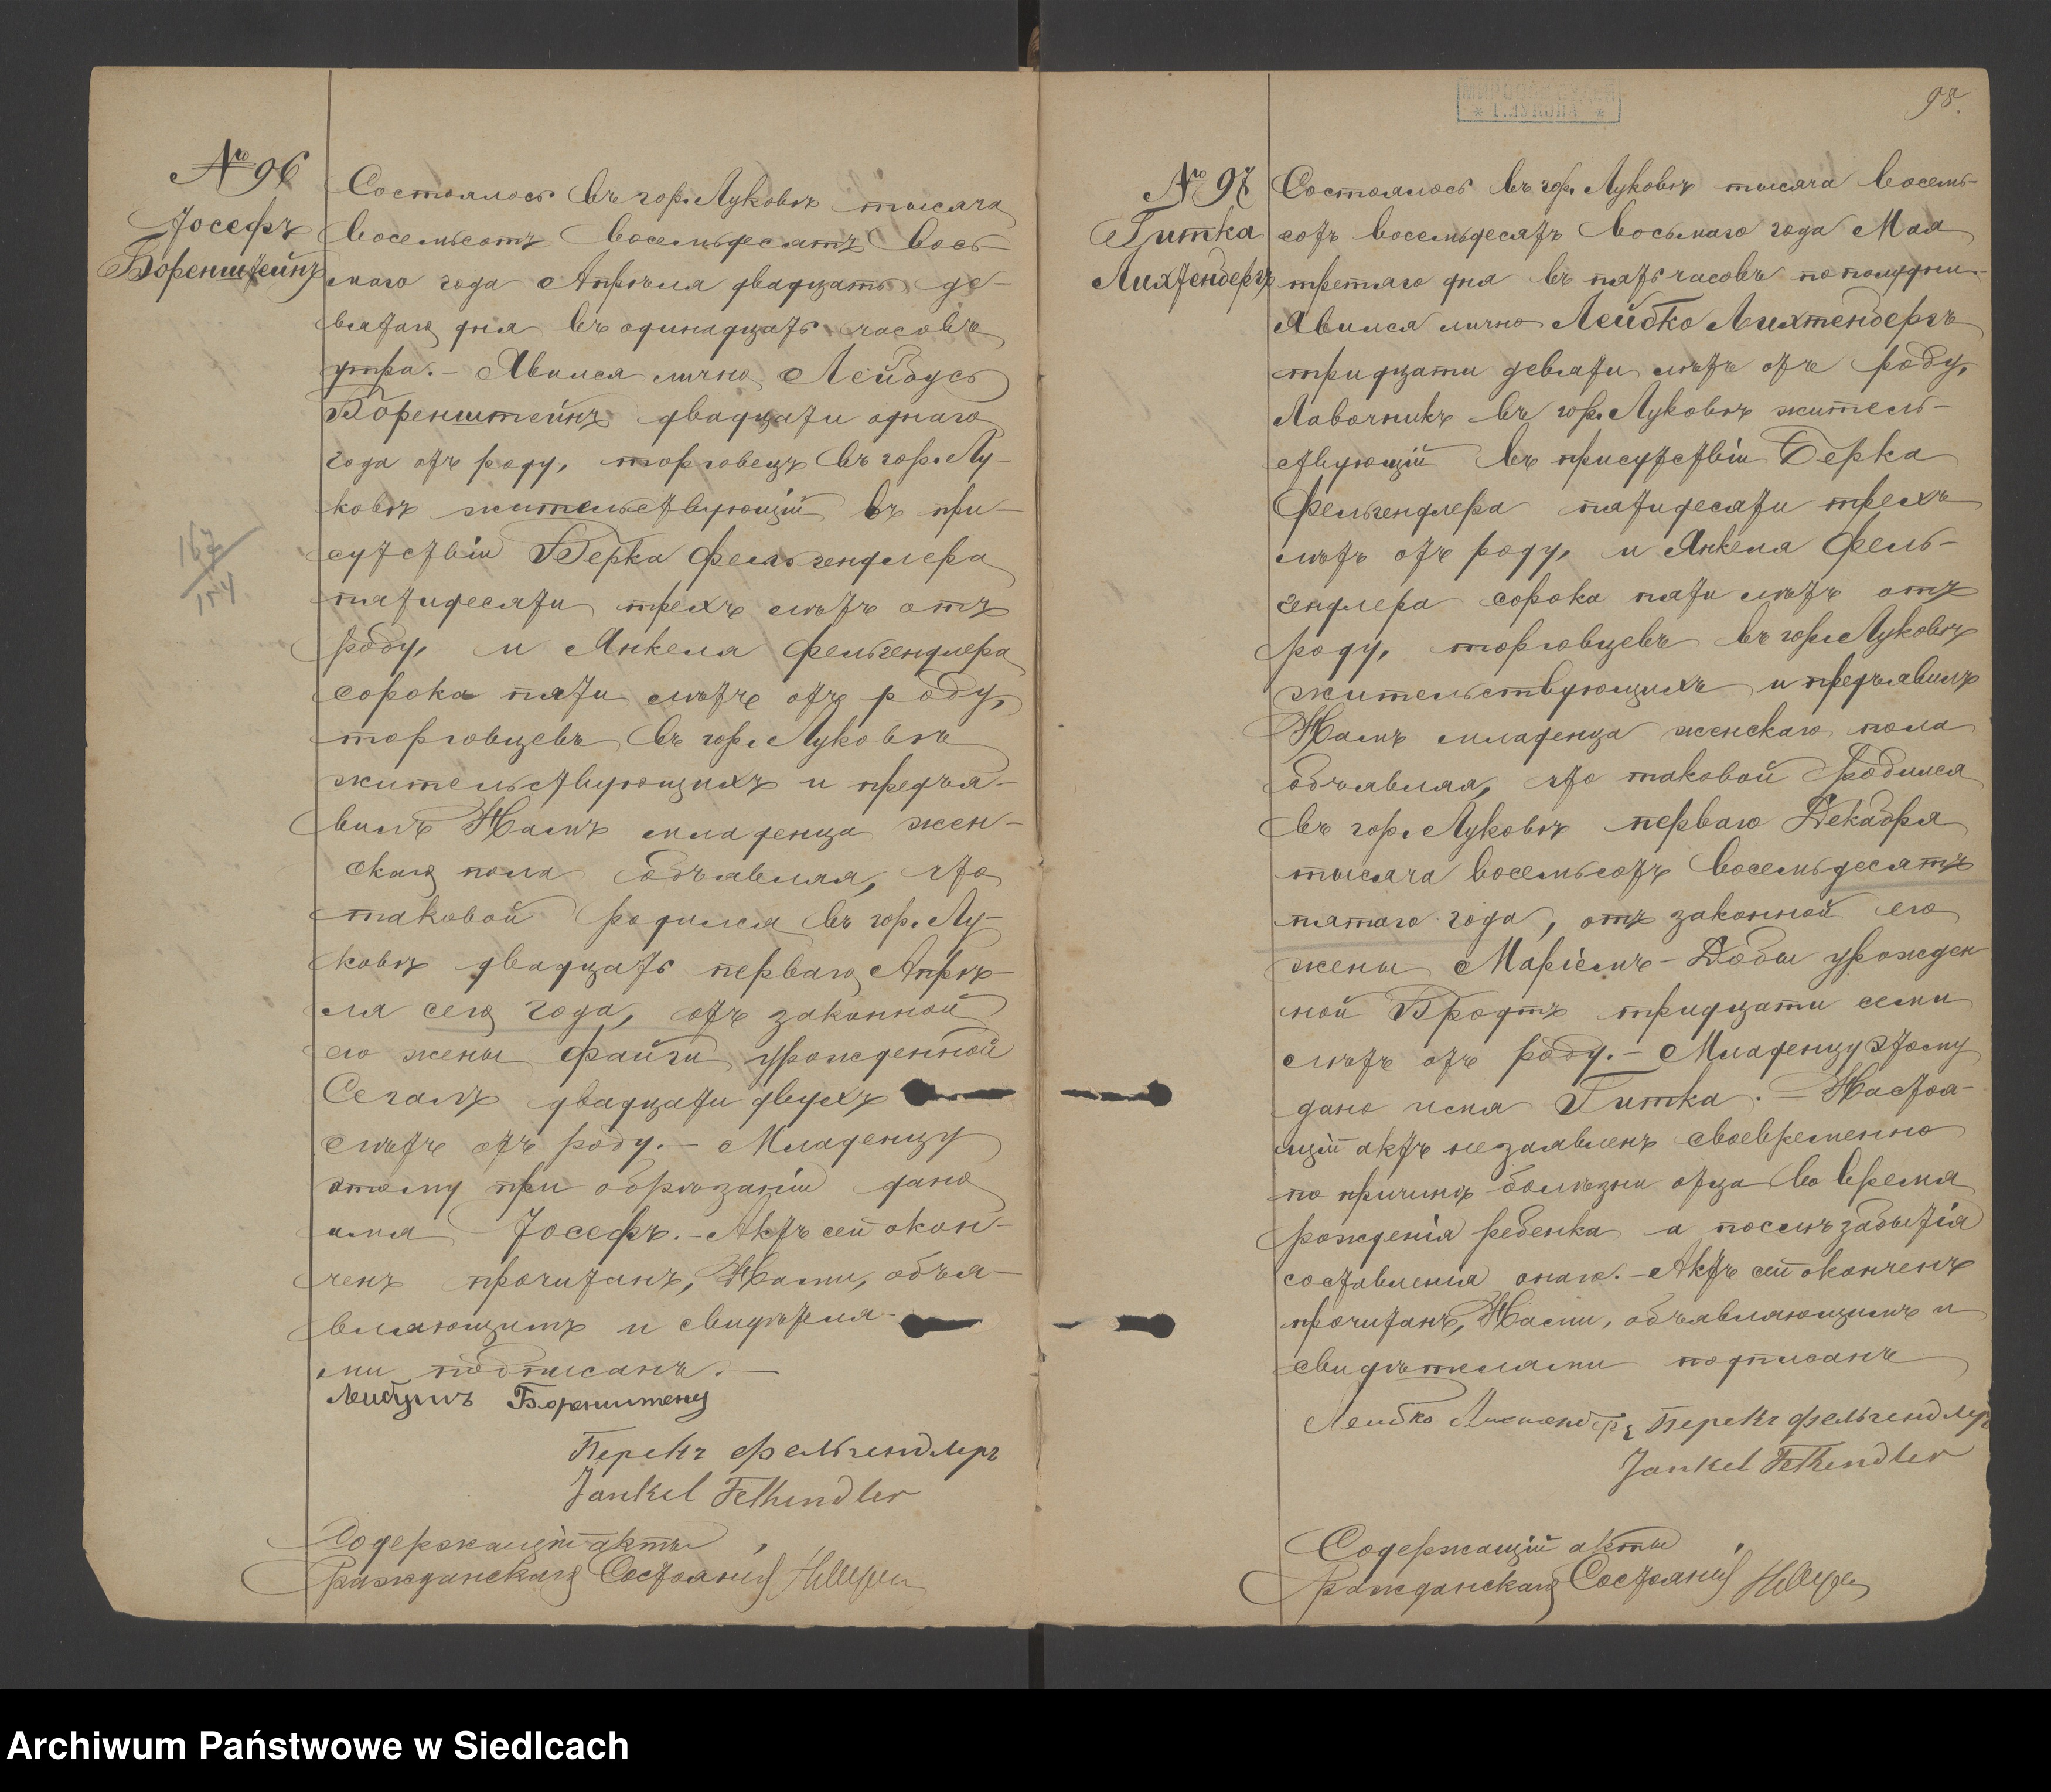 № 96
Іосефъ
Боренштейнъ
Состоялось въ гор. Луковѣ тысяча
восемьсотъ восемьдесятъ вось-
маго года Апрѣля двадцать де-
вятаго дня въ одинадцать часовъ
утра. - Явился лично Лейбусь
Боренштейнъ двадцати однаго
года отъ роду, торговецъ въ гор. Лу-
ковѣ жительствующій въ при-
сутствіи Берка Фельгендлера
пятидесяти трехъ лѣтъ отъ
роду, и Янкеля Фельгендлера
сорока пяти лѣтъ отъ роду,
торговцевъ въ гор. Луковѣ
жительствующихъ и предъя-
вилъ Намъ младенца жен-
скаго пола объявляя, что
таковой родился въ гор. Лу-
ковѣ двадцать перваго Апрѣ-
ля сего года, отъ законной
его жены Файги урожденной
Сегалъ двадцати двухъ
лѣтъ отъ роду. - Младенцу
этому при обрѣзаніи дано
имя Іосефъ. - Актъ сей окон-
ченъ прочитанъ, Нами, объя-
вляющимъ и свидѣтеля-
ми подписанъ. -
Боренштенъ
Перекъ Фельгендлеръ
Jankel Felhendler
Содержащій акты
Гражданскаго Состоянія
167
154
98.
№ 97
Гитка
Лихтенбергъ
Состоялось въ гор. Луковѣ тысяча восемь-
сотъ восемьдесятъ восьмаго года Мая
третяго дня въ пять часовъ по полудни.
Явился лично Лейбко Лихтенбергъ
тридцати девяти лѣтъ отъ роду,
Лавочникъ въ гор. Луковѣ житель-
ствующій въ присутствіи Берка
Фельгендлера пятидесяти трехъ
лѣтъ отъ роду, и Янкеля Фель-
гендлера сорока пяти лѣтъ отъ
роду, торговцевъ въ гор. Луковѣ
жительствующихъ и предъявилъ
Намъ младенца женскаго пола
объявляя, что таковой родился
въ гор. Луковѣ перваго Декабря
тысяча восемьсотъ восемьдесятъ
пятаго года, отъ законной его
жены Маріемъ-Добы урожден
ной Бродтъ тридцати семи
лѣтъ отъ роду. - Младенцу этому
дано имя Гитка. - Настоя-
щій актъ незаявленъ своевременно
по причинѣ болѣзни отца во время
рожденія ребенка а послѣ забытія
составленія онаго. - Актъ сей оконченъ
прочитанъ, Нами, объявляющимъ и
свидѣтелями подписанъ
Лейбко Лихтенбергъ Перекъ Фельгендлеръ
Jankel Felhendler
Содержащій акты
Гражданскаго Состоянія
Archiwum Państwowe w Siedlcach